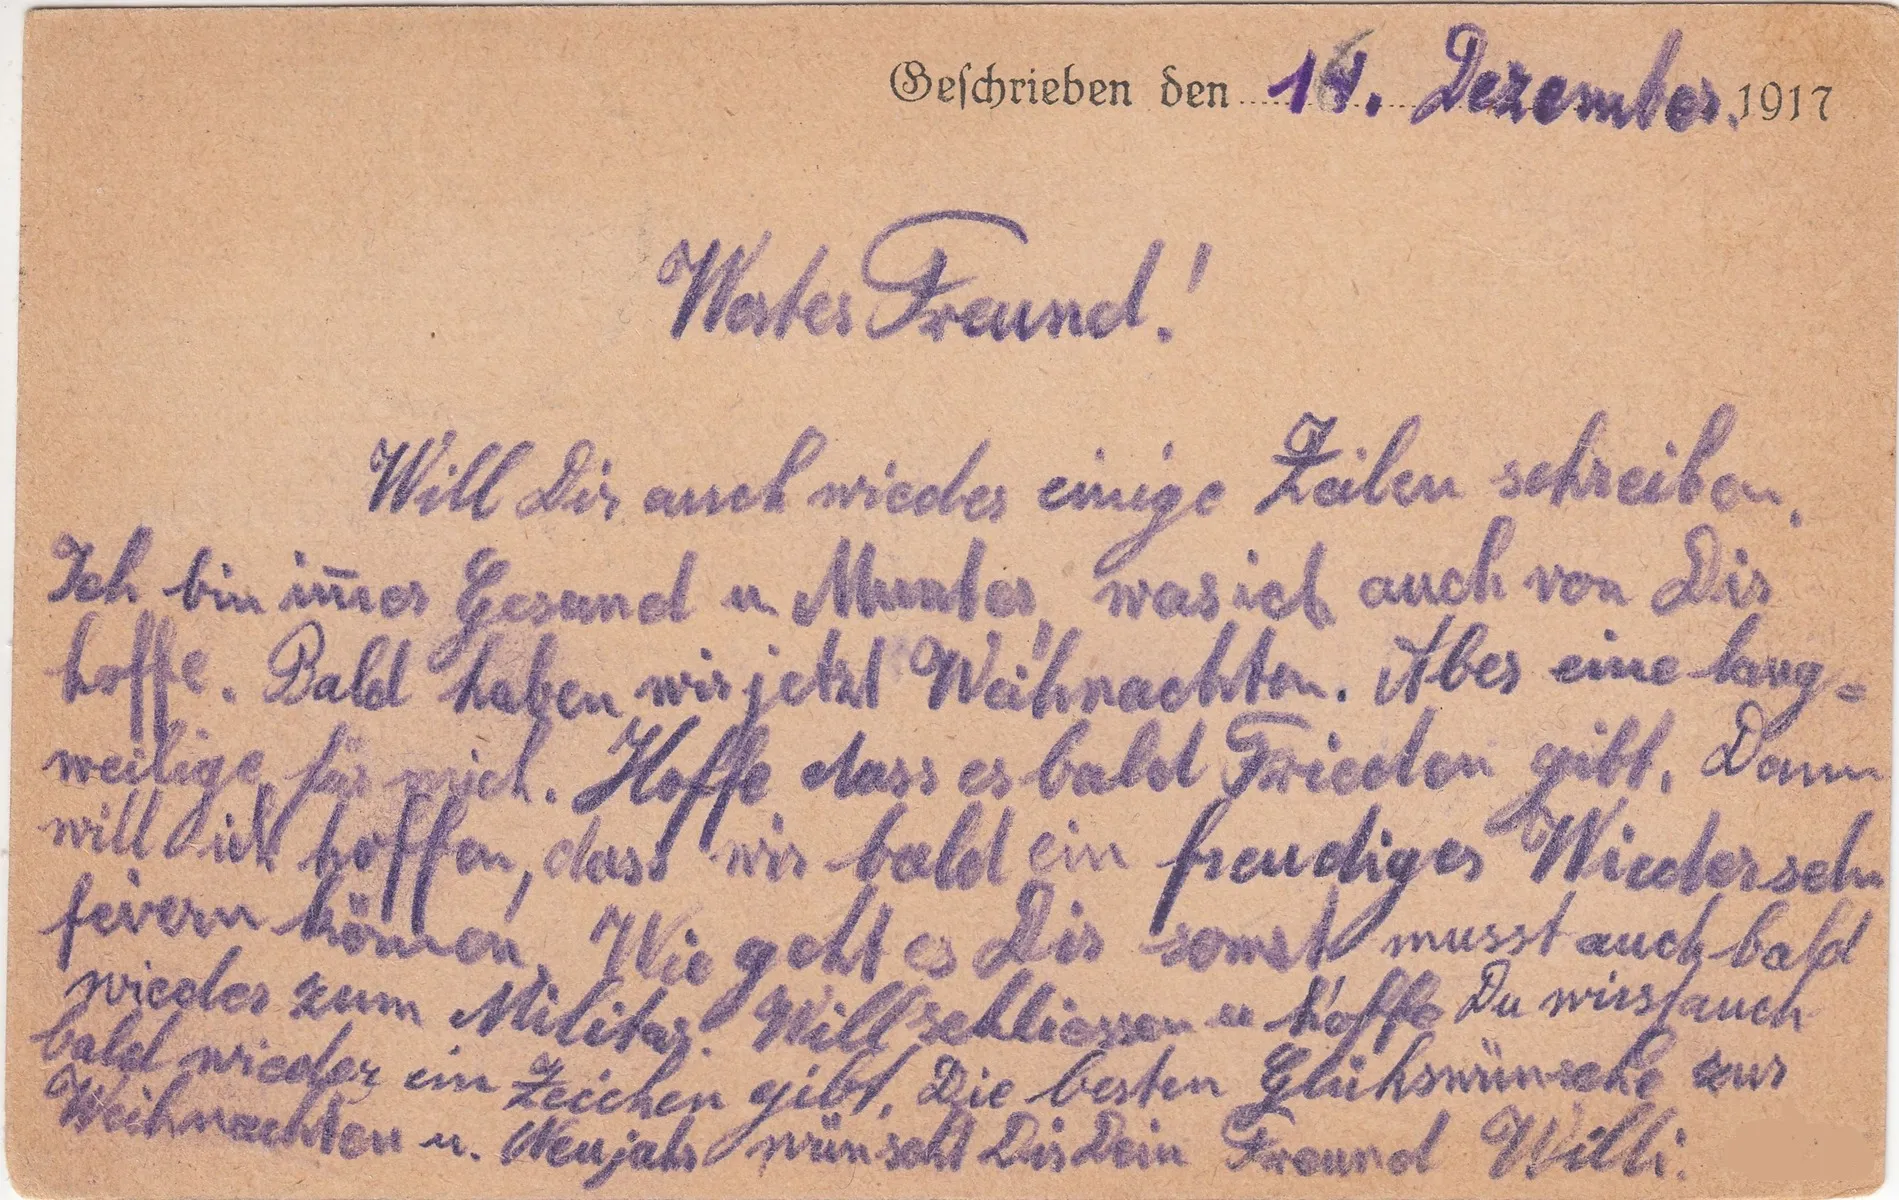 Geschrieben den 14. Dezember. 1917
Wertes Freund!
Will Dir auch wieder einige Zeilen schreiben.
Ich bin im̅er Gesund u Munter, was ich auch von Dir
hoffe. Bald haben wir jetzt Weihnachten. Aber eine lang=
weilige für mich. Hoffe dass es bald Frieden gibt. Dann
will ich hoffen, dass wir bald ein freudiges Wiedersehn
feiern können. Wie geht es Dir sonst musst auch bald
wieder zum Militär. Will schliessen u hoffe Du wirst auch
bald wieder ein Zeichen gibt. Die besten Glühswünsche zur
Weihnachten u. Neujahr wünscht Dir Dein Freund Willi.